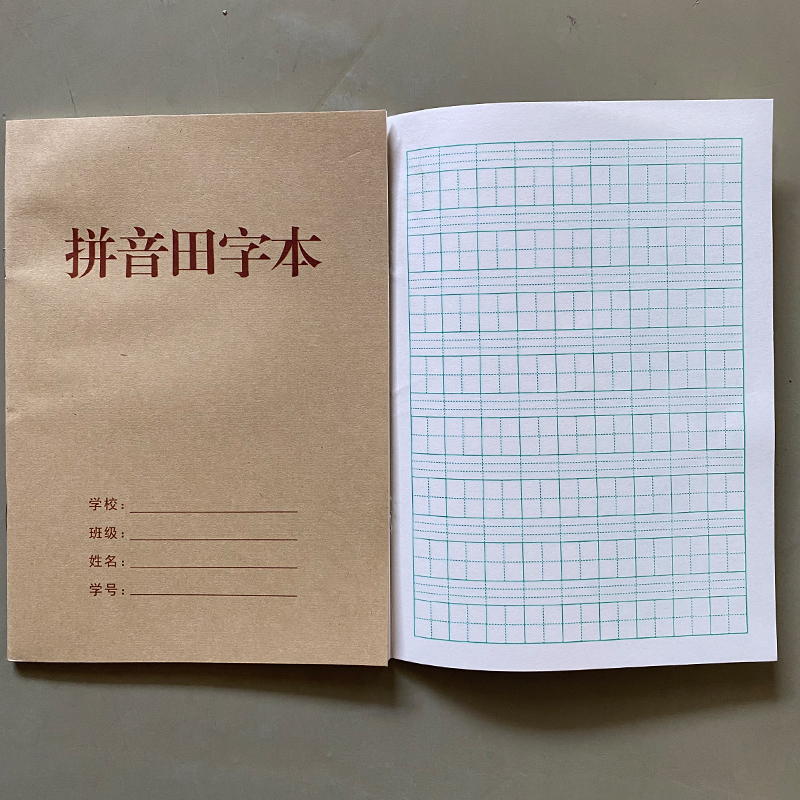 拼音田字本
学校：
班级：
姓名：
学号：